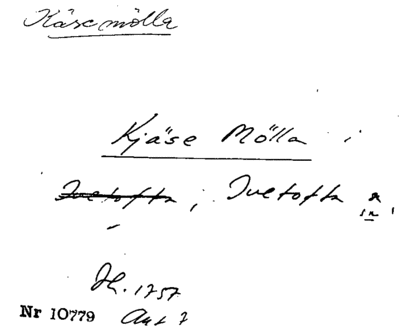 Käsemölla
Kjäse Mölla i
Ivetofta i Ivetofta sn
Jh. 1757
Nr 10779